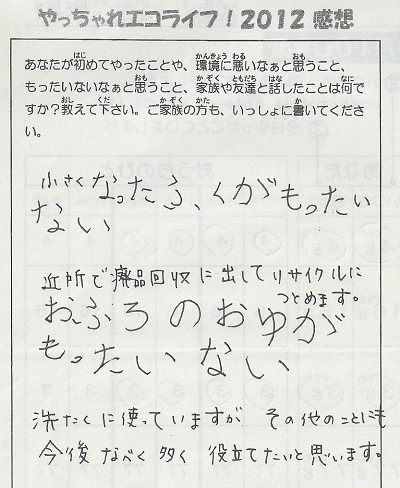 やっちゃれエコライフ!2012感想
あなたが初めてやったことや、環境に悪いなぁと思うこと、
もったいないなぁと思うこと、家族や友達と話したことは何で
すか?教えて下さい。ご家族の方も、いっしょに書いてくださ
い。
小さくなったふくがもったい
ない
近所で廃品回収に出してリサイクルに
つとめます。
おふろのおゆが
もったいない
洗たくに使っていますが その他のことにも
今後なべく多く役立てたいと思います。